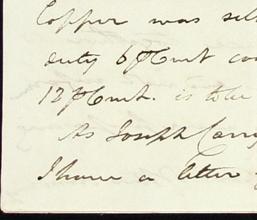 Copper was sel
duty 6 p Cent co
12 p Cent. is to be
As Joseph Carr
I have a letter